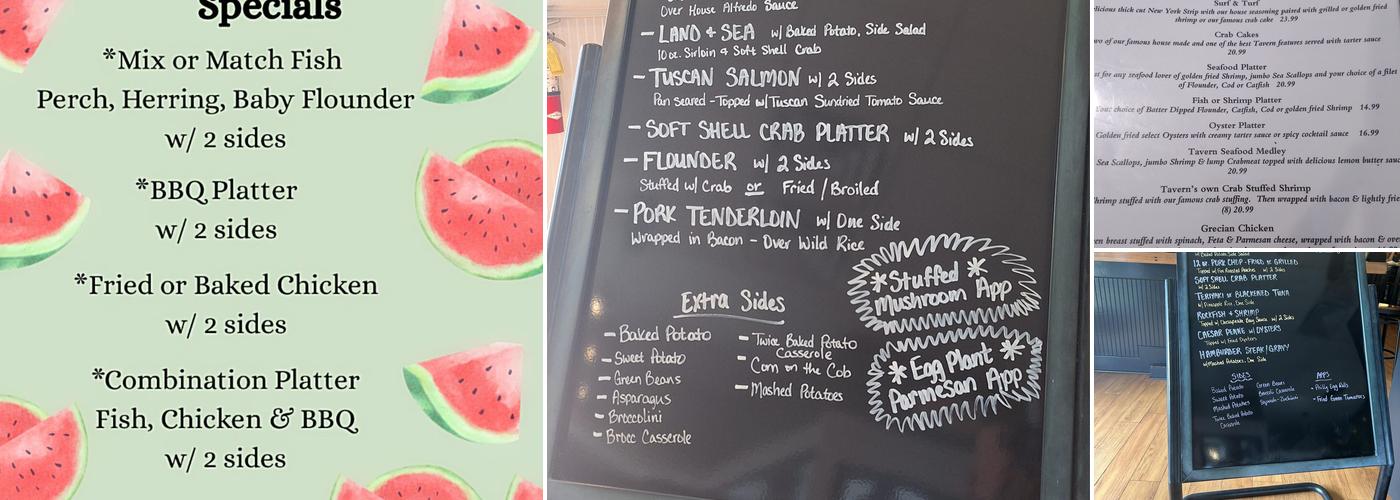 Specials
*Mix or Match Fish
Perch, Herring, Baby Flounder
w/ 2 sides
*BBQ Platter
w/ 2 sides
*Fried or Baked Chicken
w/ 2 sides
*Combination Platter
Fish, Chicken & BBQ
w/ 2 sides
Over House Alfredo Sauce
- LAND & SEA w/ Baked Potato, Side Salad
10oz. Sirloin & Soft Shell Crab
- TUSCAN SALMON w/ 2 Sides
Pan seared - Topped w/ Tuscan Sundried Tomato Sauce
- SOFT SHELL CRAB PLATTER w/ 2 Sides
- FLOUNDER w/ 2 Sides
Stuffed w/ Crab or Fried / Broiled
- PORK TENDERLOIN w/ One Side
Wrapped in Bacon - Over Wild Rice
*Stuffed*
Mushroom App
*Egg Plant*
Parmesan App
Extra Sides
- Baked Potato
- Sweet Potato
- Green Beans
- Asparagus
- Broccolini
- Brocc Casserole
- Twice Baked Potato
Casserole
- Corn on the Cob
- Mashed Potatoes
Surf & Turf
licious thick cut New York Strip with our house seasoning paired with grilled or golden fried
shrimp or our famous crab cake 23.99
Crab Cakes
wo of our famous house made and one of the best Tavern features served with tarter sauce
20.99
Seafood Platter
st for any seafood lover of golden fried Shrimp, jumbo Sea Scallops and your choice of a filet
of Flounder, Cod or Catfish 20.99
Fish or Shrimp Platter
Your choice of Batter Dipped Flounder, Catfish, Cod or golden fried Shrimp 14.99
Oyster Platter
Golden fried select Oysters with creamy tarter sauce or spicy cocktail sauce 16.99
Tavern Seafood Medley
Sea Scallops, jumbo Shrimp & lump Crabmeat topped with delicious lemon butter sauc
20.99
Tavern's own Crab Stuffed Shrimp
hrimp stuffed with our famous crab stuffing. Then wrapped with bacon & lightly frie
(8) 20.99
Grecian Chicken
en breast stuffed with spinach, Feta & Parmesan cheese, wrapped with bacon & ove
12 oz. PORK CHOP - FRIED or GRILLED
Topped w/ Roasted Peaches w/ 2 Sides
SOFT SHELL CRAB PLATTER
w/ 2 Sides
TERIYAKI or BLACKENED TUNA
w/ Pineapple Rice, One Side
ROCKFISH & SHRIMP
Topped w/ Chesapeake Bay Sauce w/ 2 Sides
CAESAR w/ OYSTERS
Topped w/ Fried Oysters
HAMBURGER STEAK/GRAVY
w/ Mashed Potatoes, One Side
SIDES
Baked Potato
Sweet Potato
Mashed Potatoes
Twice Baked Potato
Casserole
Green Beans
Broccoli Casserole
Squash-Zucchini
APPS
- Philly Egg Rolls
- Fried Green Tomatoes